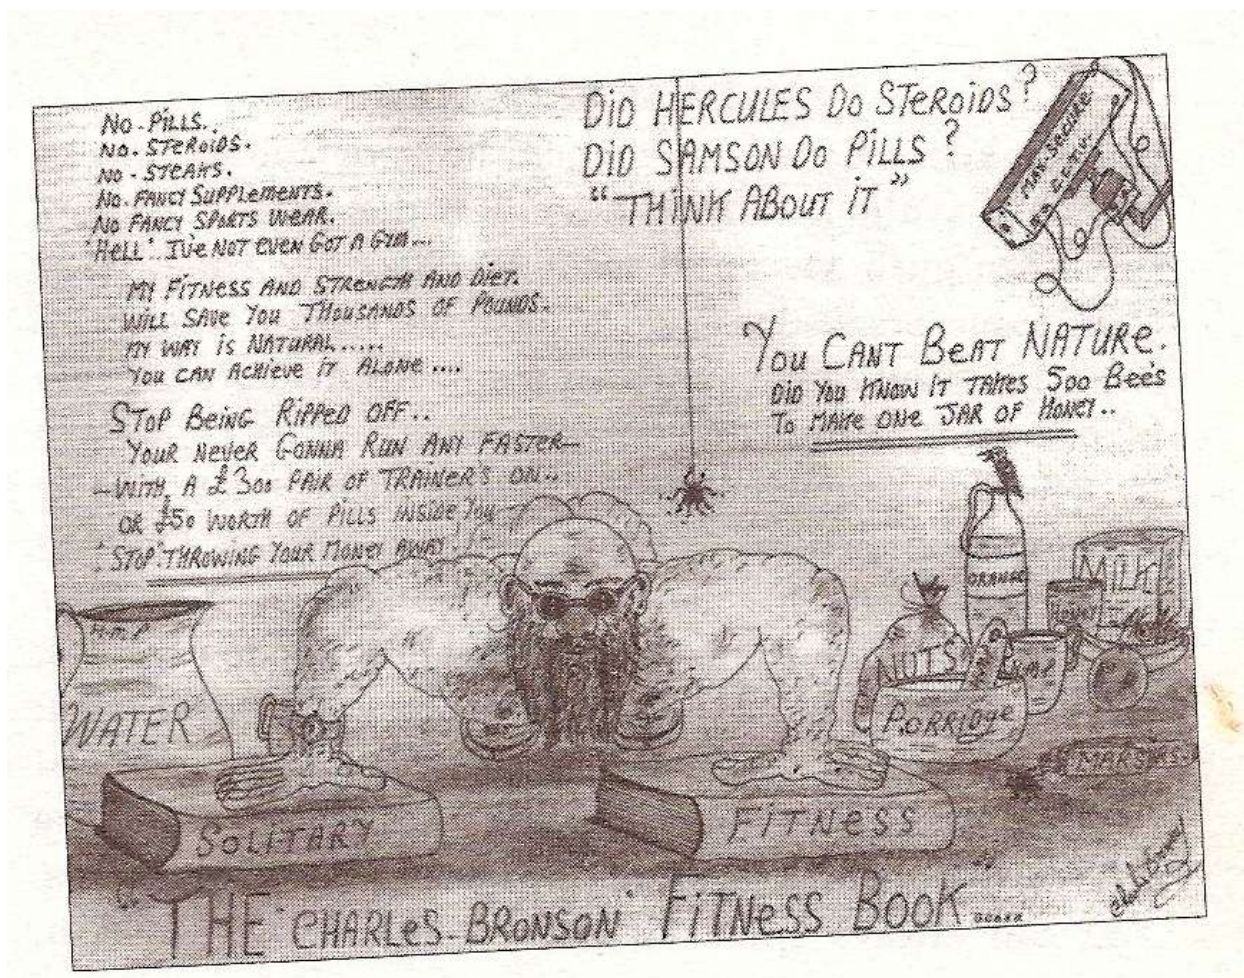 No-Pills..
No. Steroids.
No - Steaks.
No. Fancy Supplements.
No Fancy Sports Wear.
'Hell'. I've not even got a gym...
My Fitness and Strength and Diet.
Will save you thousands of pounds.
My way is natural.....
You can achieve it alone ....
Stop Being Ripped off..
Your never gonna run any faster—
—with a £300 pair of trainer's on..
or £50 worth of pills inside you
'Stop' throwing your money away!
Did Hercules do Steroids?
Did Samson do Pills?
"Think about it"
Max-Secure
C.C.T.V.
You Cant Beat Nature.
Did you know it takes 500 Bee's
to make one jar of honey..
H.M.P
Water
Orange
Milk
Honey
Nuts
H.M.P
Porridge
Solitary
Fitness
"The 'Charles-Bronson' Fitness Book....."